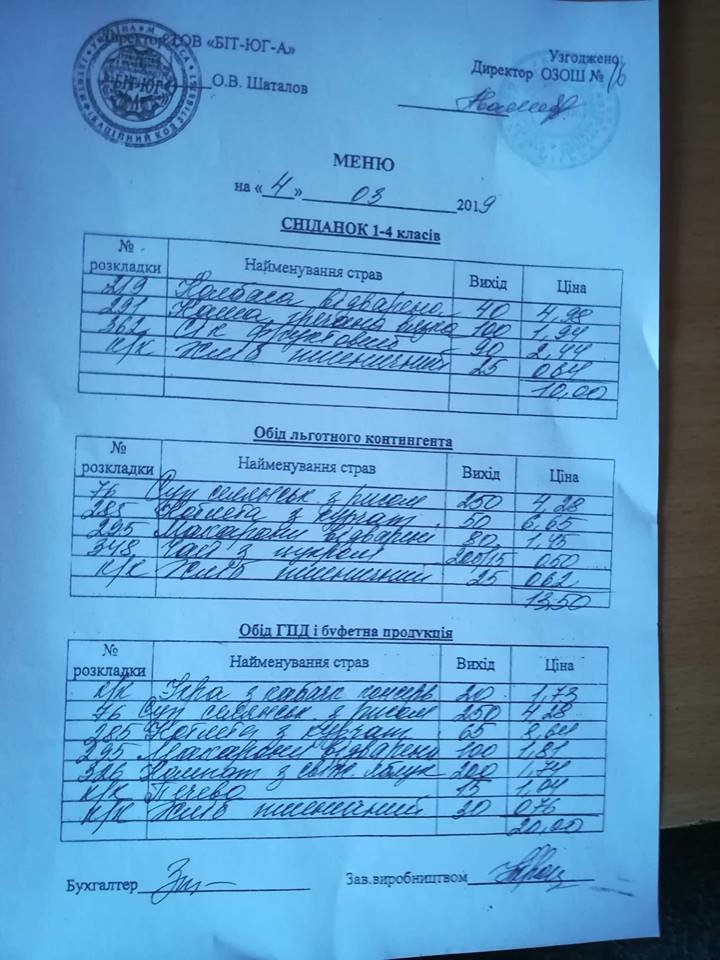 Директор ТОВ «БІТ-ЮГ-А»
О.В. Шаталов
Узгоджено:
Директор ОЗОШ № 16
БІТ-ЮГ
МЕНЮ
на « 4 » 03 2019
СНІДАНОК 1-4 класів
№ розкладки Найменування страв Вихід Ціна
219 Ковбаса відварена 40 4,98
291 Каша гречана 100 1,94
362 Сік фруктовий 90 2,44
к/к Хліб пшеничний 25 0,64
10,00
Обід льготного контингента
№ розкладки Найменування страв Вихід Ціна
76 Суп селянськ з рисом 250 4,28
285 Котлета з курчат 50 6,65
295 Макарони відварені 80 1,45
348 Чай з цукром 200/15 0,50
к/к Хліб пшеничний 25 0,62
13,50
Обід ГПД і буфетна продукція
№ розкладки Найменування страв Вихід Ціна
к/к Ікра з кабачк консерв 20 1,73
76 Суп селянськ з рисом 250 4,28
285 Котлета з курчат 65 8,64
295 Макарони відварені 100 1,81
326 Компот з свіж. яблук 200 1,74
к/к Печево 15 1,04
к/к Хліб пшеничний 30 0,76
20,00
Бухгалтер
Зав.виробництвом